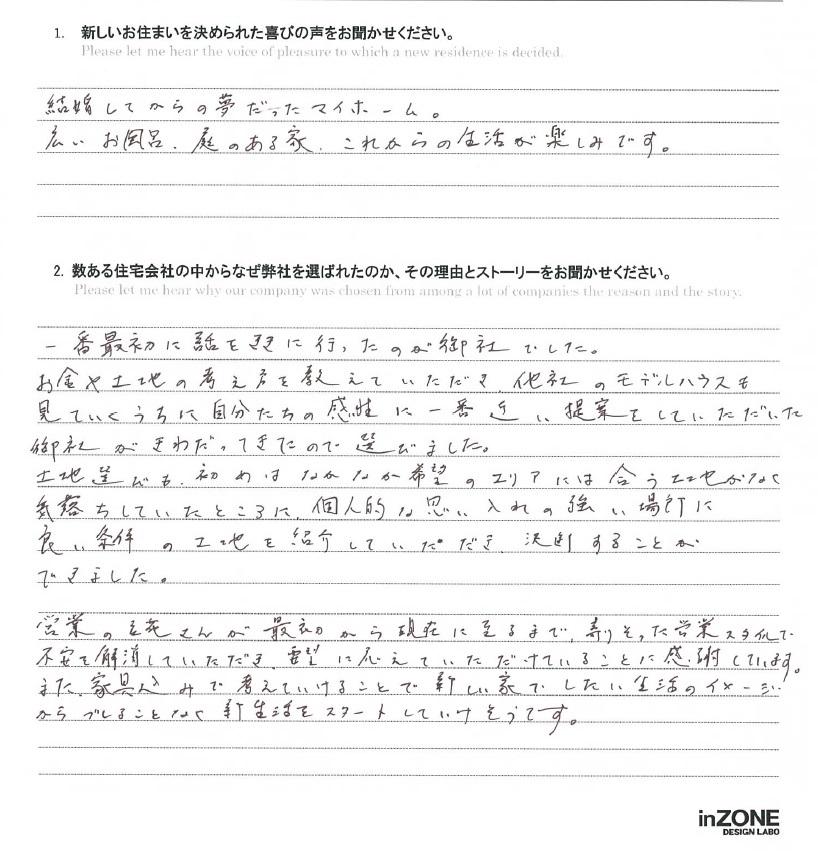 1. 新しいお住まいを決められた喜びの声をお聞かせください。
Please let me hear the voice of pleasure to which a new residence is decided.
結婚してからの夢だったマイホーム。
広いお風呂、庭のある家、これからの生活が楽しみです。
2. 数ある住宅会社の中からなぜ弊社を選ばれたのか、その理由とストーリーをお聞かせください。
Please let me hear why our company was chosen from among a lot of companies the reason and the story.
一番最初に話を聞きに行ったのが御社でした。
お金や土地の考え方を教えていただき、他社のモデルハウスも
見ていくうちに自分たちの感性に一番近い提案をしていただいた
御社がきわだってきたので選びました。
土地選びも、初めはなかなか希望のエリアには合う土地がなく
気落ちしていたところに、個人的な思い入れの強い場所に
良い条件の土地を紹介していただき、決断することが
できました。
営業の さんが最初から現在に至るまで、寄りそった営業スタイルで
不安を解消していただき、要望に応えていただけていることに感謝しています。
また、家具込みで考えていけることで新しい家でしたい生活のイメージ
からブレることなく新生活をスタートしていけそうです。
inZONE
DESIGN LABO